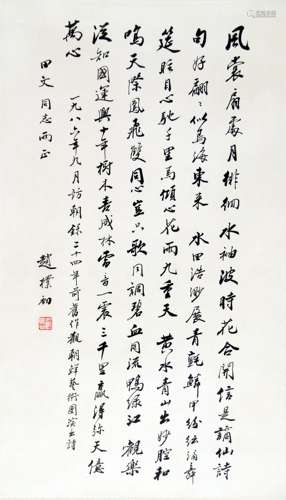 風裳扇處月徘徊水袖波時花合開信是謫仙詩
句好翩々似鳥海東來 水田浩渺展青氈鮮甲紛
筵眩目心馳千里馬傾心花雨九重天 黄水青山出妙腔和
鳴天際鳳飛雙同心豈只歌同調碧血同流鴨緑江 觀樂
從知國運興十年樹木喜成林雷音一震三千里贏得弥天億
萬心 一九八六年九月訪朝録二十四年前舊作觀朝鮮藝術團演出詩
田文同志雨正
趙樸初